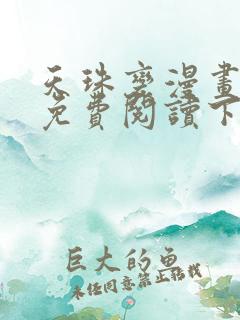 天珠變漫畫
免費閱讀下
巨大的魚
未經同意禁止轉載